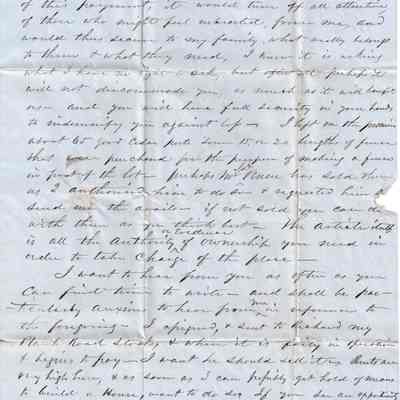 of this payment, it would turn off all attention
of those who might feel interested, from me, and
would thus secure to my family what really belongs
to them & what they need, I know it is asking
what I have no right to ask, but
will not discommode you, as much as it will benefit
me and you will have full security in your hands
to indemnify you against loss — I left on the premises
about 65 good Cedar posts some 15, or 20, lengths of fence
that purchased for the purpose of making a fence
in front of the lot — perhaps Mr has sold them
as I authorized him to do so & requested him to
send me the if not sold you can do
with them as you think best — The Article itself
is all the Authority or evidence of ownership you need in
order to take Charge of the place —
I want to hear from you as often as you
can find time to write — and shall be par-
ticularly anxious to hear from you in reference to
the foregoing — I assigned, & sent to Richard my
Road Stock, & when it is in operation
& begins to pay — I want he should sell it — Rents are
very high here, & as soon as I can get hold of means
to build a House, want to do so, If you see an opportunity